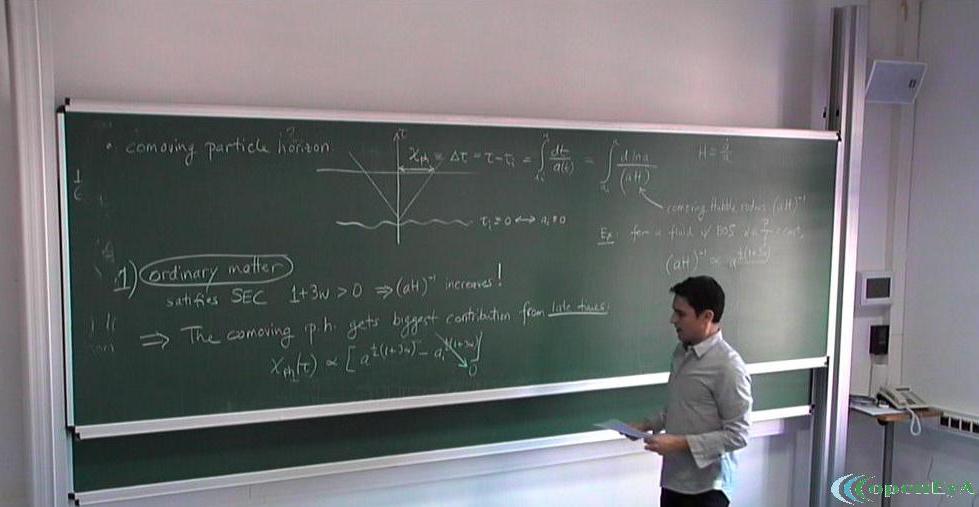 • comoving particle horizon
χ_ph = Δτ = τ - τ_i = ∫ dt/a(t) = ∫ d ln a/(aH)
H = ȧ/a
comoving Hubble radius (aH)⁻¹
τ_i = 0 ↔ a_i = 0
Ex: for a fluid w/ EOS
(aH)⁻¹ ∝ a^{½(1+3w)}
1) ordinary matter
satifies SEC 1+3w > 0 ⇒ (aH)⁻¹ increases!
⇒ The comoving p.h. gets biggest contribution from late times:
χ_ph(τ) ∝ [a^{½(1+3w)} - a_i^{½(1+3w)}]
0
openEyA